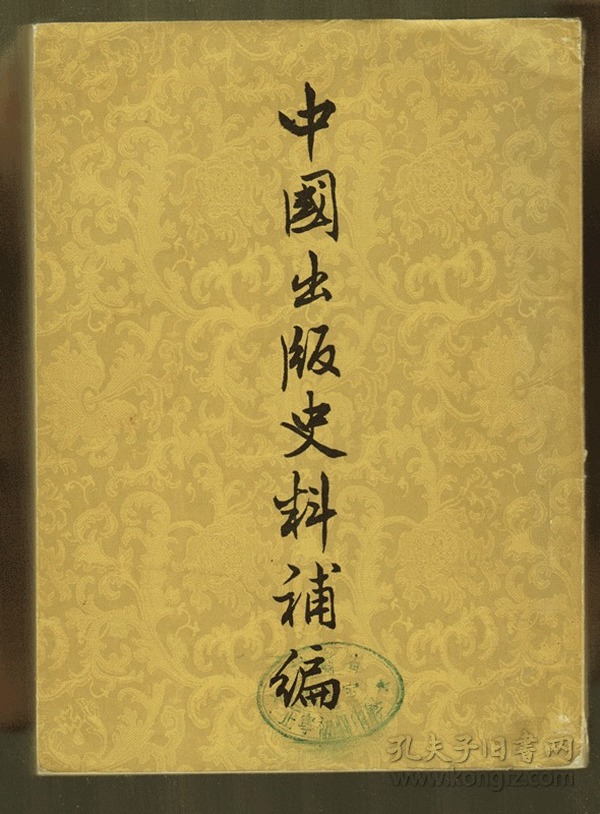 中國出版史料補編
孔夫子旧书网
www.kongfz.com